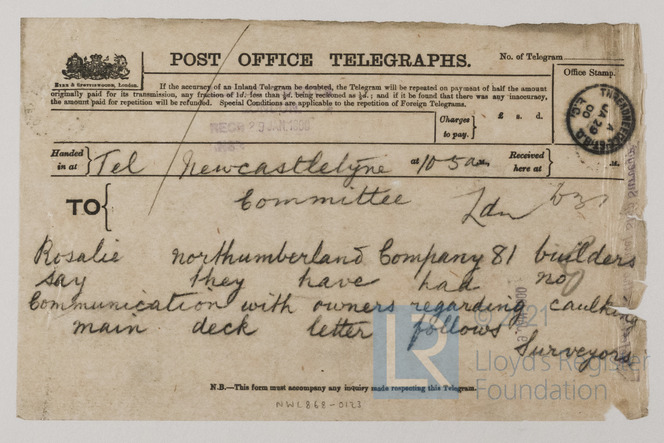 POST OFFICE TELEGRAPHS.
No. of Telegram
EYRE & SPOTTISWOODE, London.
Office Stamp.
If the accuracy of an Inland Telegram be doubted, the Telegram will be repeated on payment of half the amount
originally paid for its transmission, any fraction of 1d. less than ½d. being reckoned as ½d.; and if it be found that there was any inaccuracy,
the amount paid for repetition will be refunded. Special Conditions are applicable to the repetition of Foreign Telegrams.
Charges to pay.
£ s. d.
RECD 29 JAN 1900
THREADNEEDLE ST. B.O.
A
JA 29
00
E.C.
Handed in at
Tel Newcastletyne
at 10 5 a.m.
Received here at
M.
TO
Committee Ldn
Rosalie northumberland Company 81 builders
say they have had no
Communication with owners regarding caulking
main deck letter follows
Surveyors
LR
© 2021
Lloyd's Register
Foundation
N.B.—This form must accompany any inquiry made respecting this Telegram.
NWL868-0123